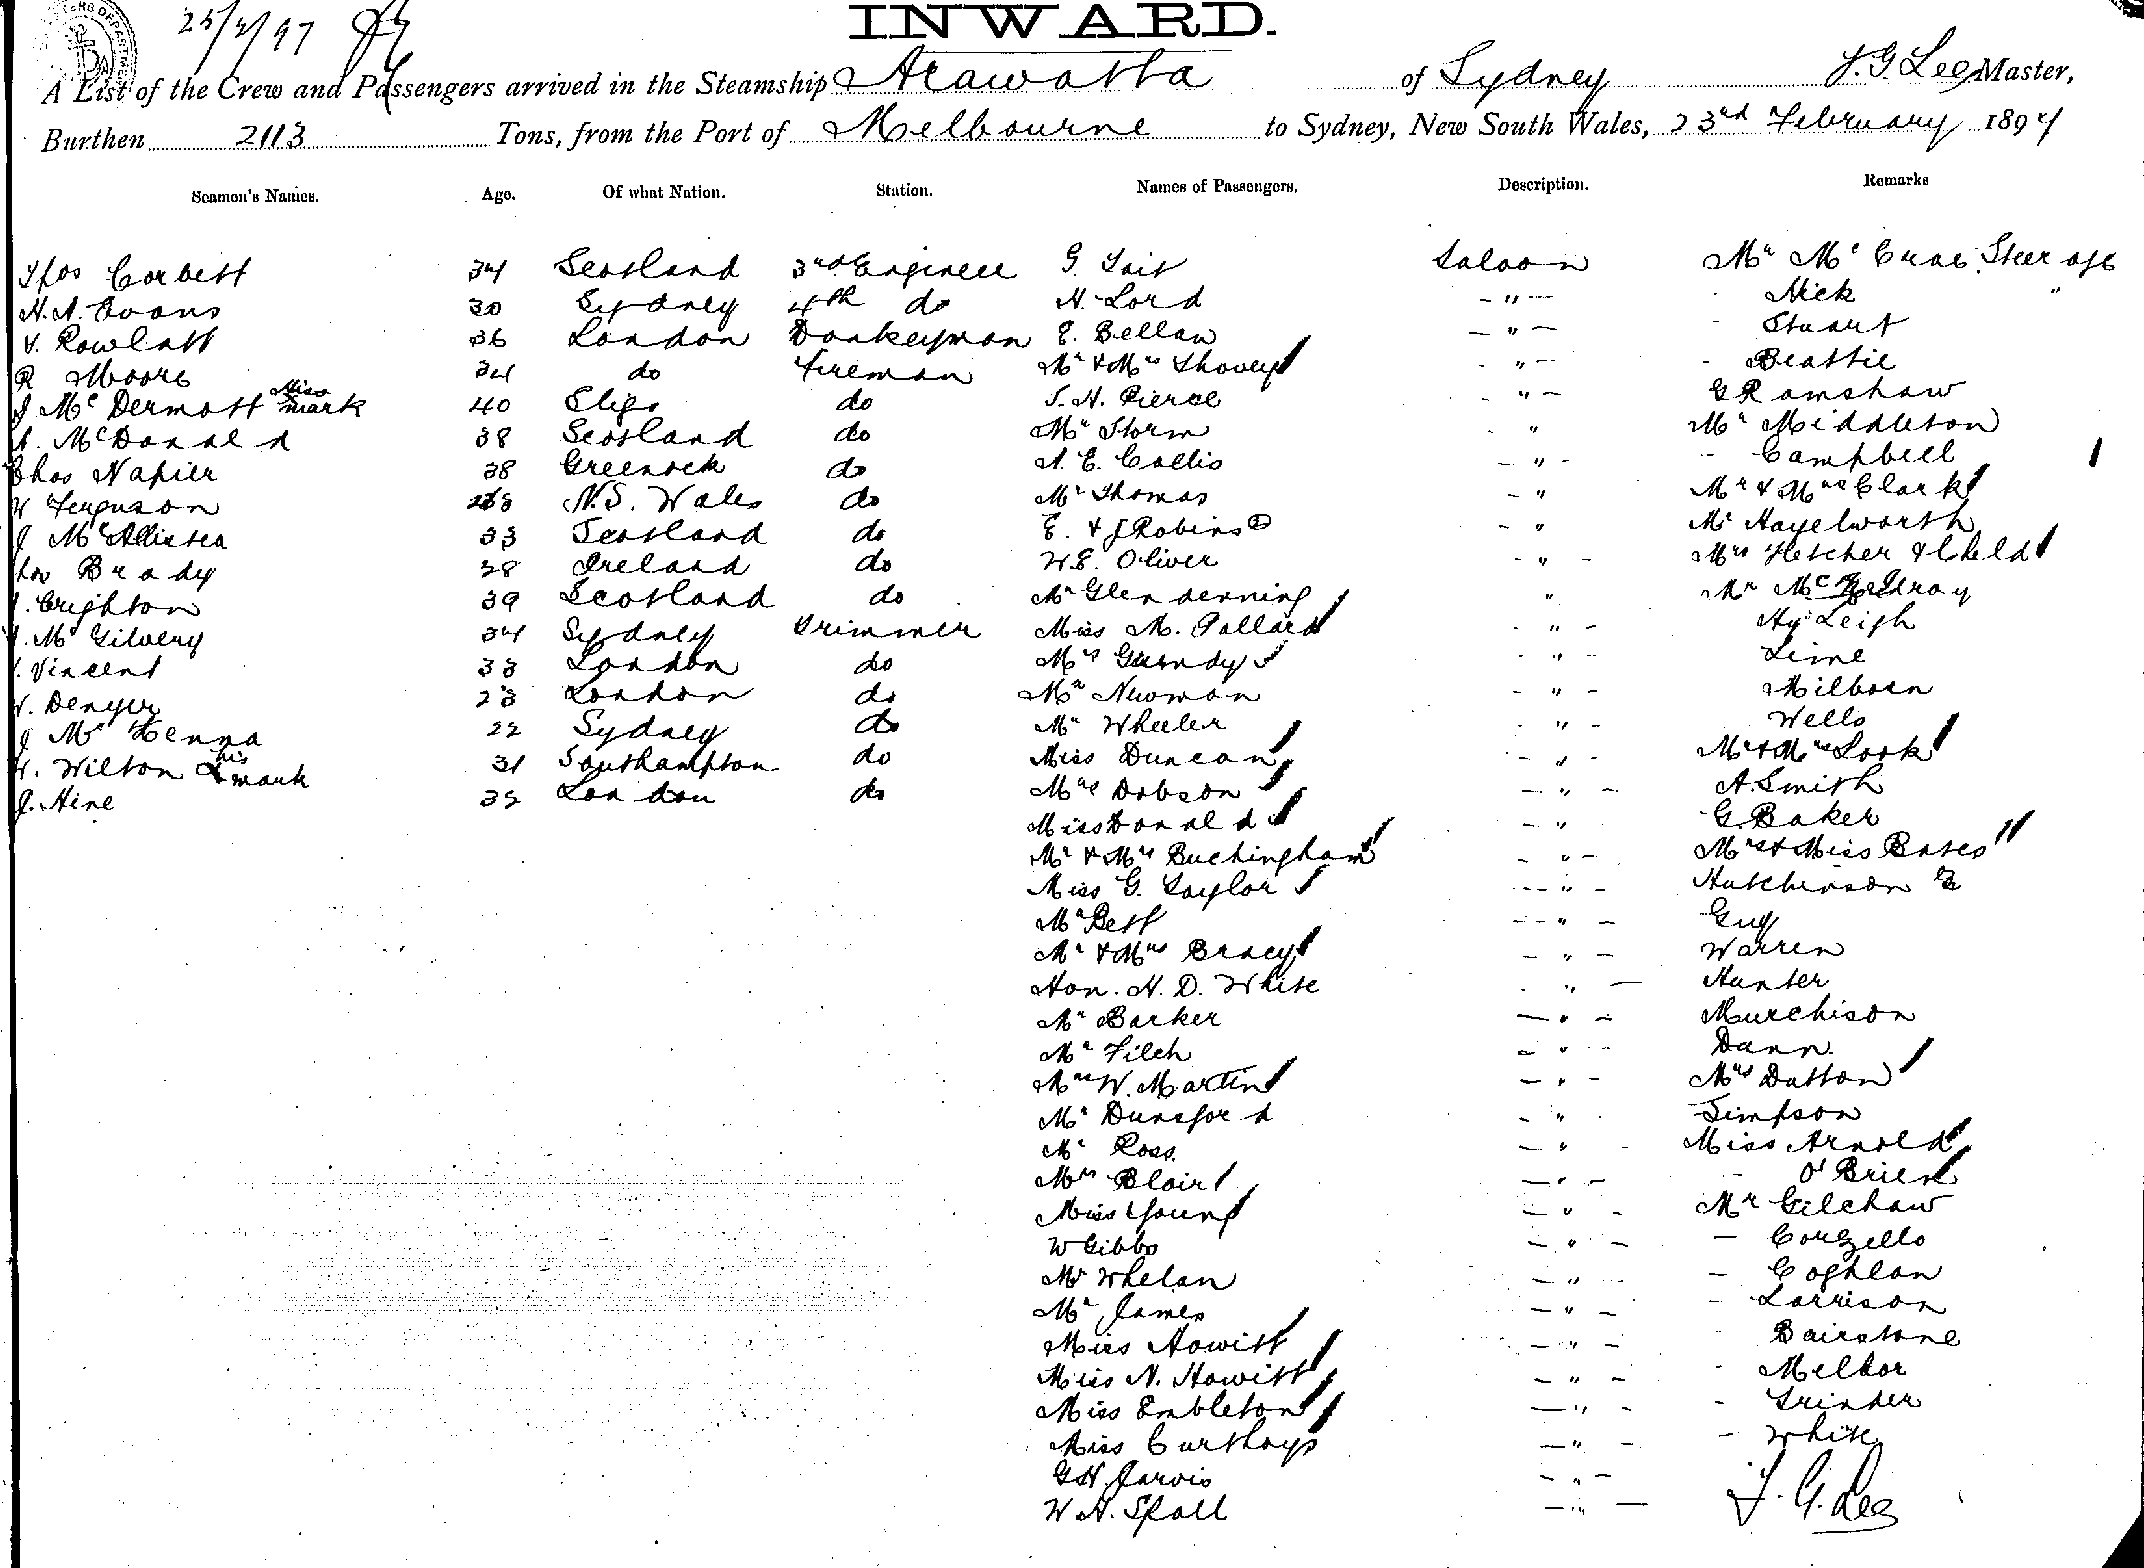 25/2/97
INWARD.
A List of the Crew and Passengers arrived in the Steamship Arawatta of Sydney J.G. Lee Master,
Burthen 2113 Tons, from the Port of Melbourne to Sydney, New South Wales, 23rd February 1897
Seamen's Names. Age. Of what Nation. Station. Names of Passengers. Description. Remarks
Thos Corbett 34 Scotland 3rd Engineer G. Tait Saloon Mr McCrae Steerage
H.A. Evans 30 Sydney 4th do H. Lord " Hick "
V. Rowlatt 36 London Donkeyman E. Bellaw " Stuart
R Moore 34 do Fireman Mr & Mrs Thovey " Beattie
J McDermott mark 40 Sligo do S.H. Pierce " G Ramshaw
A. McDonald 38 Scotland do Mr Storm " Mr Middleton
Chas Napier 38 Greenock do A. E. Collis " - Campbell
W Ferguson N.S. Wales do Mr Thomas " Mr & Mrs Clark
J McAllister 33 Scotland do E. & J Robins " Mr Hayelworth
Thos Brady 38 Ireland do W.E. Oliver " Mrs Fletcher & Child
J. Crighton 39 Scotland do Mr Glendenning " Mr Mc
J. McGilvery 34 Sydney Trimmer Miss M. Pollard " Hy Leigh
J. Vincent 33 London do Mrs Grundy " Lime
W. Denyer 23 London do Mr Newman " Milborn
J McKenna 22 Sydney do Mr Wheeler " Wells
W. Wilton his X mark 31 Southampton do Miss Duncan " Mr & Mrs Look
J. Hine 35 London do Mrs Dobson " A. Smith
Miss Donald " G. Baker
Mr & Mrs Buckingham " Mrs & Miss Bates
Miss G. Taylor " Hutchinson
Mr Bett " Guy
Mr & Mrs Bracy " Warren
Hon. H. D. White " Hunter
Mr Barker " Murchison
Mr Filch " Dann
Mrs W. Martin " Mrs Dutton
Mr Dunsford " Simpson
Mr Ross " Miss Arnold
Mrs Blair " - O'Brien
Miss Young " Mr Gilchaw
W Gibbs " - Couzello
Mr Whelan " - Coghlan
Mr James " - Larrison
Miss Howitt " Bairstone
Miss N. Howitt " - Melbor
Miss Embleton " - Grinder
Miss Curthoys " - White
G H Jarvis " J. G. Lee
W H. Spall "